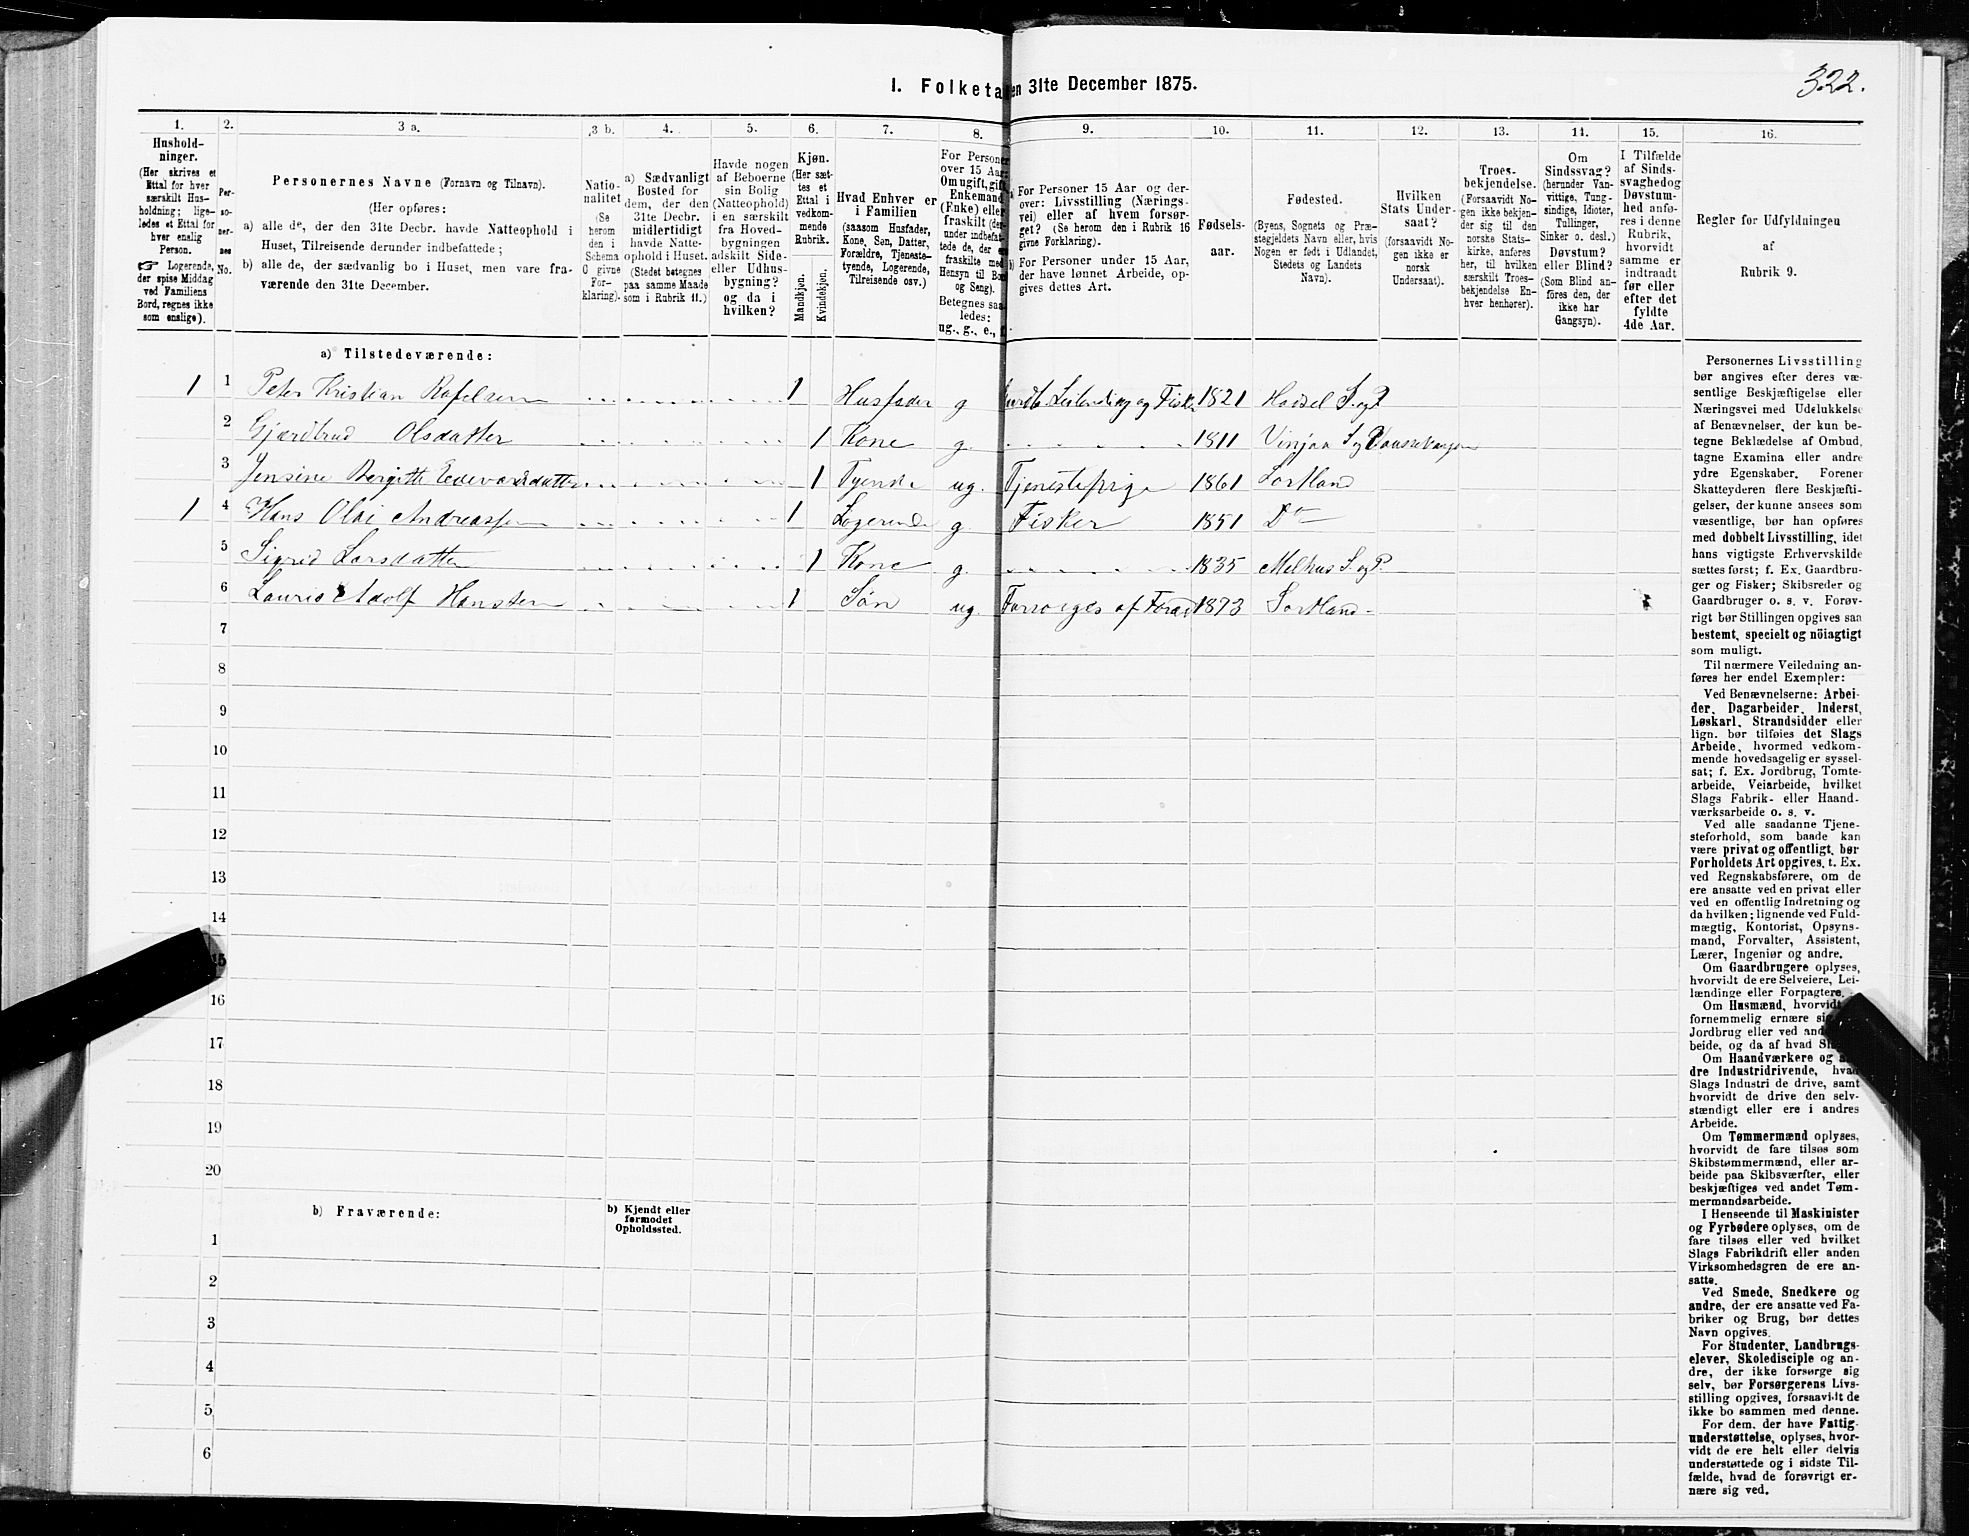 I. Folketa en 31te December 1875.
322.
1. 2. 3 a. 3 b. 4. 5. 6. 7. 8. 9. 10. 11. 12. 13. 14. 15. 16.
Hushold-
ninger.
(Her skrives et
Ettal for hver
særskilt Hus-
holdning; lige-
ledes et Ettal for
hver enslig
Person.
☞ Logerende,
der spise Middag
ved Familiens
Bord, regnes ikke
som enslige).
Per-
so-
ner-
nes
No.
Personernes Navne (Fornavn og Tilnavn).
(Her opføres:
a) alle de, der den 31te Decbr. havde Natteophold i
Huset, Tilreisende derunder indbefattede;
b) alle de, der sædvanlig bo i Huset, men vare fra-
værende den 31te December.
Natio-
nalitet
(Se
herom
den i
Schema
O givne
For-
klaring).
a) Sædvanligt
Bosted for
dem, der den
31te Decbr.
midlertidigt
havde Natte-
ophold i Huset.
(Stedet betegnes
paa samme Maade
som i Rubrik 11.)
Havde nogen
af Beboerne
sin Bolig
(Natteophold)
i en særskilt
fra Hoved-
bygningen
adskilt Side-
eller Udhus-
bygning?
og da i
hvilken?
Kjøn.
(Her sæt-
tes et
Ettal i
vedkom-
mende
Rubrik.
Mandkjøn.
Kvindekjøn.
Hvad Enhver er
i Familien
(saasom Husfader,
Kone, Søn, Datter,
Forældre, Tjeneste-
tyende, Logerende,
Tilreisende osv.)
For Persone
over 15 Aar
Om ugift, gift
Enkemand
(Enke) eller
fraskilt (der-
under indbefat-
tede de, der ere
fraskilte med
Hensyn til Bo
og Seng).
Betegnes saa-
ledes:
ug., g., e.,
a) For Personer 15 Aar og der-
over: Livsstilling (Nærings-
vei) eller af hvem forsør-
get? (Se herom den i Rubrik 16
givne Forklaring).
b) For Personer under 15 Aar,
der have lønnet Arbeide, op-
gives dettes Art.
Fødsels-
aar.
Fødested.
(Byens, Sognets og Præ-
stegjeldets Navn eller, hvis
Nogen er født i Udlandet,
Stedets og Landets
Navn).
Hvilken
Stats Under-
saat?
(forsaavidt No-
gen ikke er
norsk
Undersaat).
Troes-
bekjendelse.
(Forsaavidt No-
gen ikke bekjen-
der sig til den
norske Stats-
kirke, anføres
her, til hvilken
særskilt Troes-
bekjendelse En-
hver henhører).
Om
Sindssvag?
(herunder Van-
vittige, Tung-
sindige, Idioter,
Tullinger,
Sinker o. desl.)
Døvstum?
eller Blind?
(Som Blind an-
føres den, der
ikke har
Gangsyn).
I Tilfælde
af Sinds-
svaghed og
Døvstum-
hed anfø-
res i denne
Rubrik,
hvorvidt
samme er
indtraadt
før eller
efter det
fyldte
4de Aar.
Regler for Udfyldningen
af
Rubrik 9.
a) Tilstedeværende:
1 1 Peter Kristian Rafelsen 1 Husfader g Leilending og Fisker 1821 Hadsel S. og P
2 Gjærtrud Olsdatter 1 Kone g. 1811 Vinjaa S og P
3 Jensine Bergitte Edevardsdatter 1 Tyende ug. Tjenestepige 1861 Sortland
1 4 Hans Olai Andreassen 1 Logerende g. Fisker 1851 Do
5 Sigrid Larsdatter 1 Kone g. 1835 Melhus S. og P
6 Lauris Adolf Hansten 1 Søn ug. Forsørges af Foræld 1873 Sortland
7
8
9
10
11
12
13
14
15
16
17
18
19
20
b) Fraværende:
b) Kjendt eller
formodet
Opholdssted.
1
2
3
4
5
6
Personernes Livsstilling
bør angives efter deres væ-
sentlige Beskjæftigelse eller
Næringsvei med Udelukkelse
af Benævnelser, der kun be-
tegne Beklædelse af Ombud,
tagne Examina eller andre
ydre Egenskaber. Forener
Skatteyderen flere Beskjæfti-
gelser, der kunne ansees som
væsentlige, bør han opføres
med dobbelt Livsstilling, idet
hans vigtigste Erhvervskilde
sættes først; f. Ex. Gaardbru-
ger og Fisker; Skibsreder og
Gaardbruger o. s. v. Forøv-
rigt bør Stillingen opgives saa
bestemt, specielt og nöiagtigt
som muligt.
Til nærmere Veiledning an-
føres her endel Exempler:
Ved Benævnelserne: Arbei-
der, Dagarbeider, Inderst,
Løskarl, Strandsidder eller
lign. bør tilføies det Slags
Arbeide, hvormed vedkom-
mende hovedsagelig er syssel-
sat; f. Ex. Jordbrug, Tomte-
arbeide, Veiarbeide, hvilket
Slags Fabrik- eller Haand-
værksarbeide o. s. v.
Ved alle saadanne Tjene-
steforhold, som baade kan
være privat og offentligt, bør
Forholdets Art opgives, t. Ex.
ved Regnskabsførere, om de
ere ansatte ved en privat eller
ved en offentlig Indretning og
da hvilken; lignende ved Fuld-
mægtig, Kontorist, Opsyns-
mand, Forvalter, Assistent,
Lærer, Ingeniør og andre.
Om Gaardbrugere oplyses,
hvorvidt de ere Selveiere, Lei-
lændinge eller Forpagtere.
Om Husmænd, hvorvidt
fornemmelig ernære si
Jordbrug eller ved and
beide, og da af hvad Sl
Om Haandværkere og
dre Industridrivende, hvad
Slags Industri de drive, samt
hvorvidt de drive den selv-
stændigt eller ere i andres
Arbeide.
Om Tømmermænd oplyses,
hvorvidt de fare tilsøs som
Skibstømmermænd, eller ar-
beide paa Skibsværfter, eller
beskjæftiges ved andet Tøm-
mermandsarbeide.
I Henseende til Maskinister
og Fyrbødere oplyses, om de
fare tilsøs eller ved hvilket
Slags Fabrikdrift eller anden
Virksomhedsgren de ere an-
satte.
Ved Smede, Snedkere og
andre, der ere ansatte ved Fa-
briker og Brug, bør dettes
Navn opgives.
For Studenter, Landbrugs-
elever, Skoledisciple og an-
dre, der ikke forsørge sig
selv, bør Forsørgerens Livs-
stilling opgives, forsaavidt de
ikke bo sammen med denne.
For dem, der have Fattig-
understøttelse, oplyses, hvor-
vidt de ere helt eller delvis
understøttede og i sidste Til-
fælde, hvad de forøvrigt er-
nære sig ved.